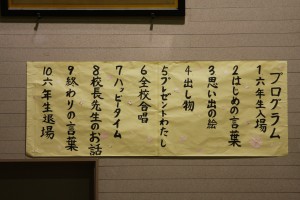 プログラム
1 六年生入場
2 はじめの言葉
3 思い出の絵
4 出し物
5 プレゼントわたし
6 全校合唱
7 ハッピータイム
8 校長先生のお話
9 終わりの言葉
10 六年生退場